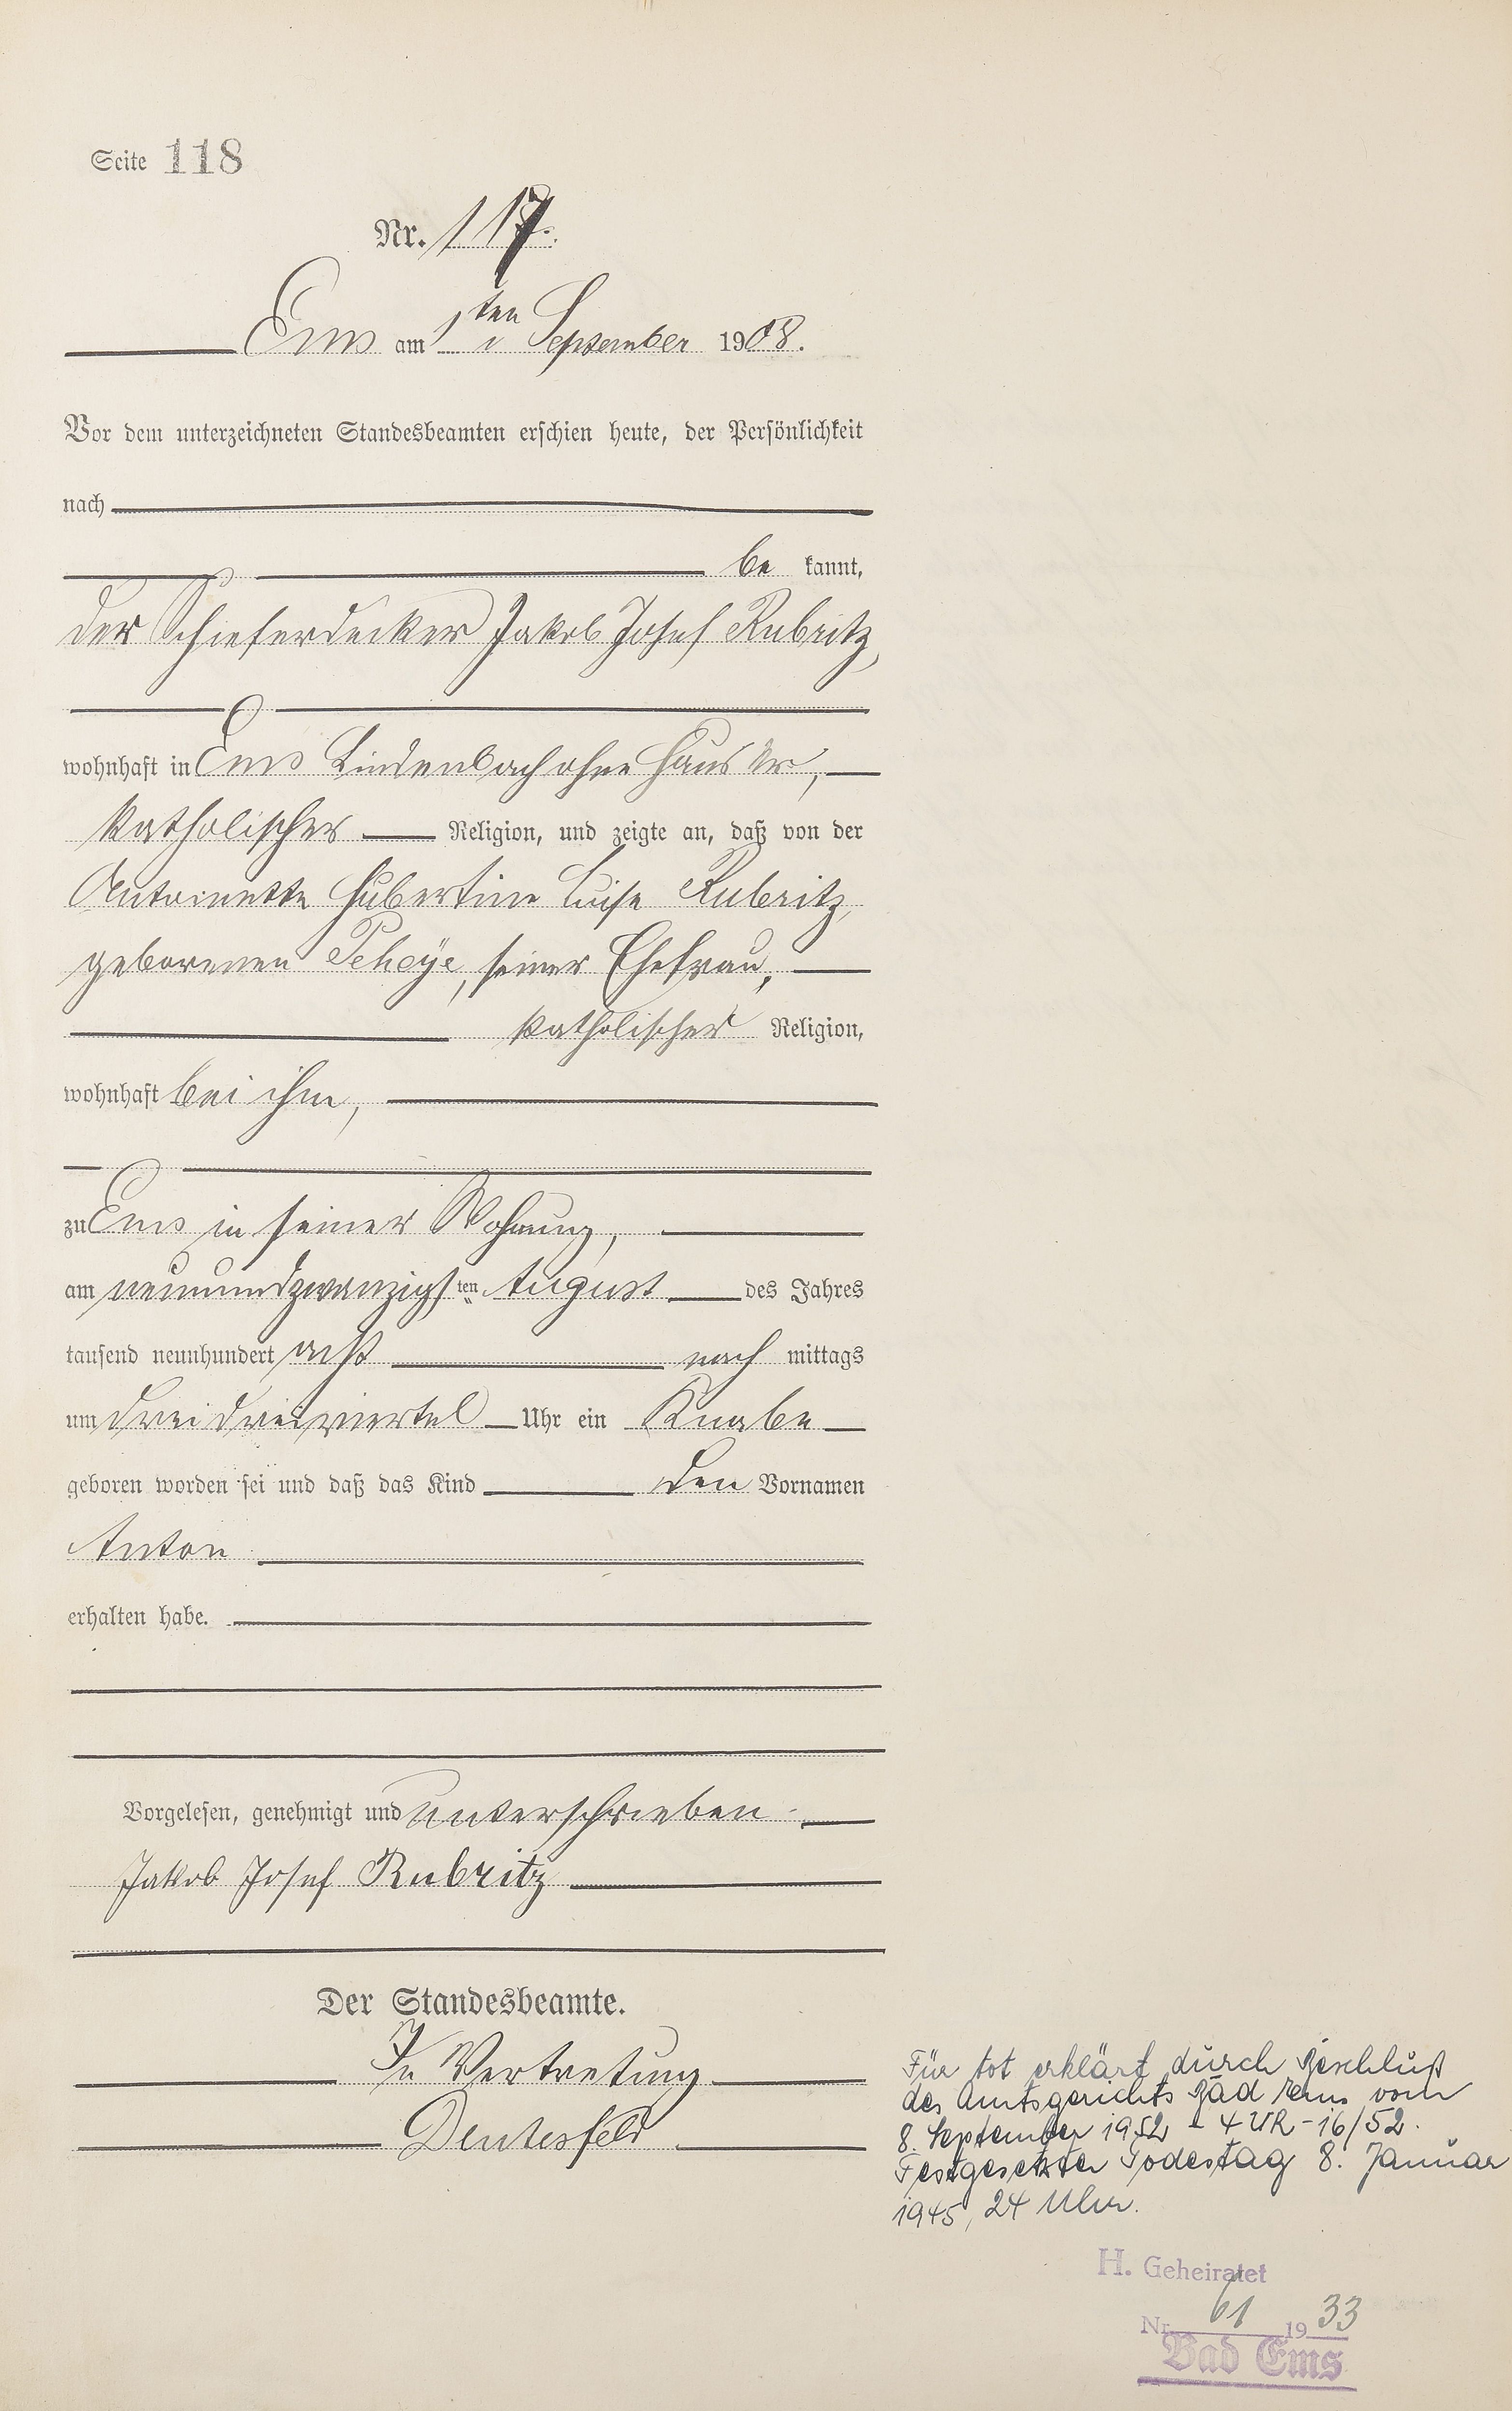 Seite 118
Nr. 117.
Ems am 1ten September 1908.
Vor dem unterzeichneten Standesbeamten erschien heute, der Persönlichkeit
nach
be kannt,
der Schieferdecker Jakob Josef Rubritz,
wohnhaft in Ems Lindenbach ohne Haus Nr,
katholischer Religion, und zeigte an, daß von der
Antoinette Hubertine Luise Rubritz,
geborenen Pehoye, seiner Ehefrau,
katholischer Religion,
wohnhaft bei ihm,
zu Ems in seiner Wohnung,
am neunundzwanzigsten August des Jahres
tausend neunhundert acht nach mittags
um drei dreiviertel Uhr ein Knabe
geboren worden sei und daß das Kind den Vornamen
Anton
erhalten habe.
Vorgelesen, genehmigt und unterschrieben
Jakob Josef Rubritz
Der Standesbeamte.
In Vertretung
Deutesfeld
Für tot erklärt durch Beschluß
des Amtsgerichts Bad Ems vom
8. September 1952 - 4 UR - 16/52.
Festgesetzter Todestag 8. Januar
1945, 24 Uhr.
H. Geheiratet
Nr. 61 1933
Bad Ems